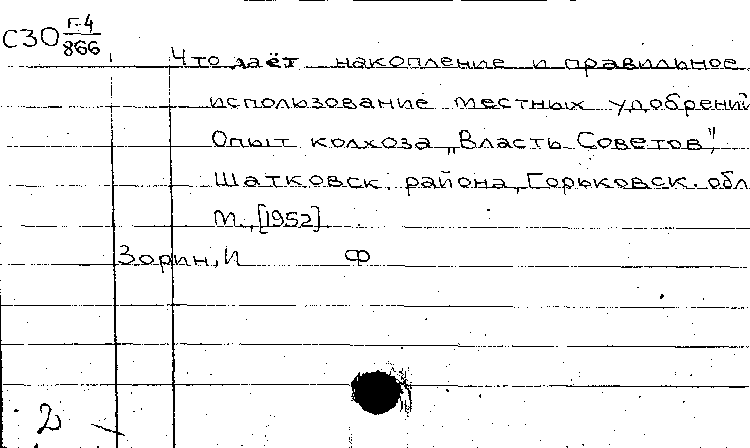 СЗО Г-4/866
Что даёт накопление и правильное
использование местных удобрений
Опыт колхоза „Власть Советов",
Шатковск. района, Горьковск. обл
М., [1952]
Зорин, И Ф
2